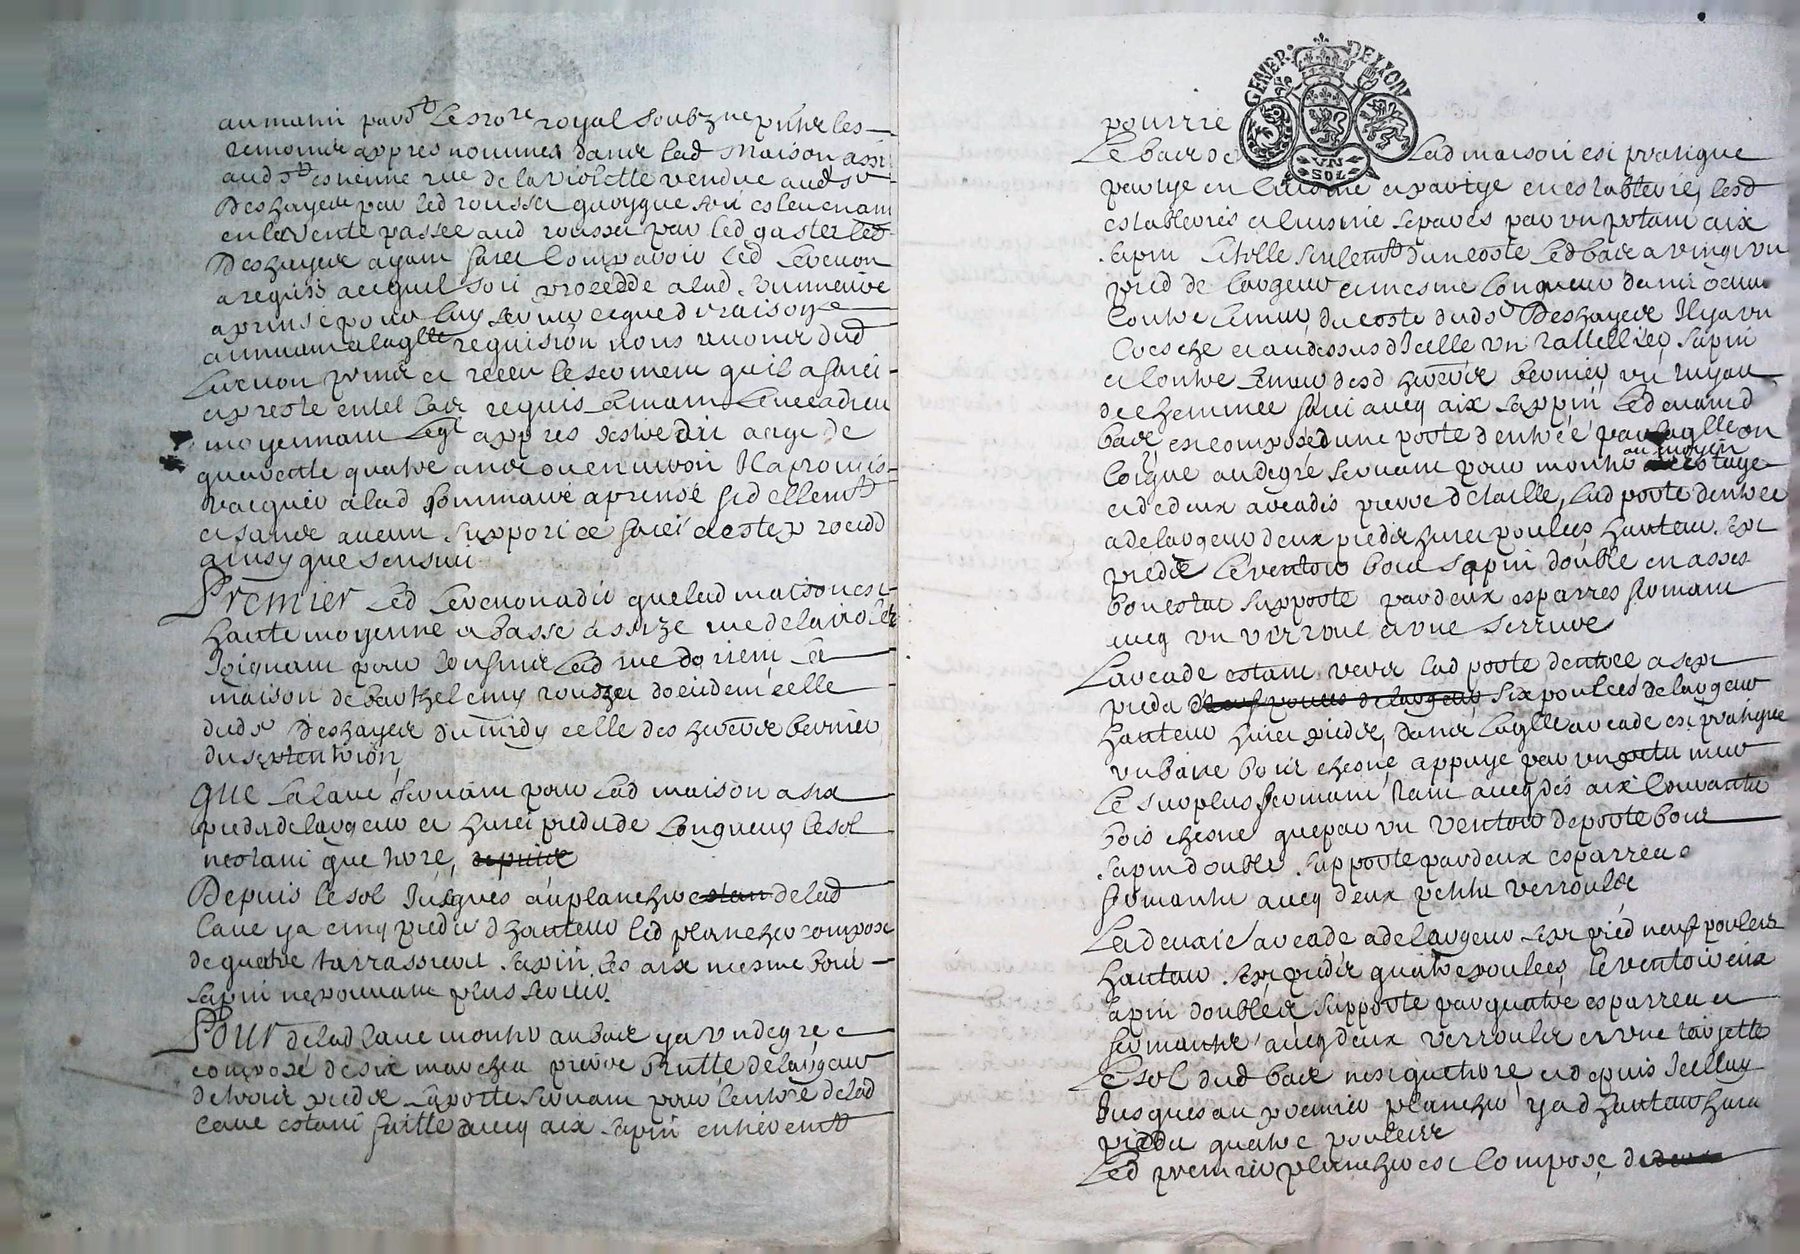 au matin pard.t le no.re royal soubzne p.nt les
temoins appres nommes dans lad maison assi
aud S.t Estienne rue de la violette vendue aud s.r
Deshayes par led rousset quoyque soit
en la vente passee aud rousset par led gaster led
Deshayes ayant faict comparoir led Levenon
a requis acequil soit procedde alad sommaire
aprinse pour luy servir ceque de raison
a laq.lle requision nous avons dud
Levenon prins et receu le serment qu'il a faict
et preste en tel cas requis
moyennant leq.l appres dit aage de
quarente quatre ans ou environ Il a promis
vacquer alad sommaire aprinse fidellem.t
et sans aucun support ce faict a este proceddé
ainsy que sensuit
Premier led Levenon a dit que lad maison est
haute moyenne et basse assize rue de la violette
Joignant pour confins lad rue dorient la
maison de barthelemy rouzet doccident celle
dud s.r Deshayes du midy celle des hoirs bernier
du septentrion
que la cave servant pour lad maison a six
pieds de largeur et huict pieds de longueur le sol
nestant que terre,
Depuis le sol Jusques au plancher de lad
cave y a cinq pieds d'hauteur led plancher compose
de quatre tarrassieres sapin les aix mesme bois
sapin ne pouvant plus servir.
Pour de lad cave monter au bas y a un degre
composé de six marches pierre brutte de largeur
de trois pieds la porte servant pour lentre de lad
cave estant faitte avecq aix sapin entierem.t
pourrie
GENER. DE LYON
UN SOL
Le bas de lad maison est pratique
partye en et partye en establerie, lesd
establerie et separes par un postam aix
sapin seulem.t d'un coste led bas a vingt un
pied de largeur et mesme longueur
contre le mur du coste dud s.r Deshayes Il y a un
creche et au dessus d'icelle un rattellier sapin
et contre le mur desd hoirs bernier un tuyau
de cheminee faict avecq aix sappin led
bas est composé d'une porte d'entrée par laq.lle on
au degre servant pour monter au moyen estage
et de deux arcades pierre de taille, lad porte d'entree
a de largeur deux pieds huict poulces hauteur sept
pieds le ventoir bois sapin double en asses
bon estat supporte par deux esparres fermant
avecq un verroul et une serrure
Larcade estant vers lad porte dentree a sept
pieds six poulces de largeur
hauteur huict pieds, dans laq.lle arcade est pratique
un banc bois chesne appuye par un petit mur
le surplus fermant tant avecq des aix
bois chesne que par un ventoir de porte bois
sapin double supporte par deux esparres
fermante avecq deux petits verroulz
La deux.e arcade a de largeur sept pied neuf poulces
hauteur sept pieds quatre poulces le ventoir aix
sapin doubles supporte par quatre esparres et
fermante avecq deux verroulz et une targette
Le sol dud bas nest que terre, et depuis Icelluy
Jusques au premier plancher y a d'hauteur huict
pieds quatre poulces
Led premier plancher est compose de